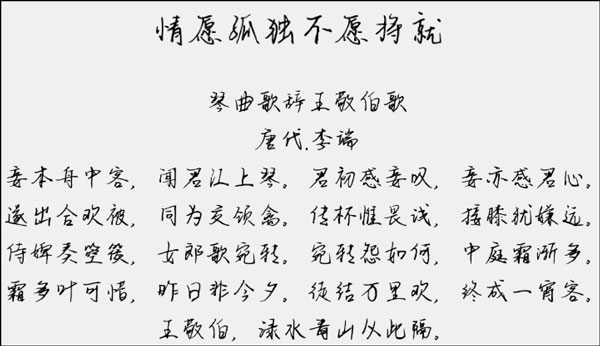 情愿孤独不愿将就
琴曲歌辞王敬伯歌
唐代.李端
妾本舟中客，闻君江上琴。君初感妾叹，妾亦感君心。
遂出合欢被，同为交颈禽。传杯惟畏浅，接膝犹嫌远。
侍婢奏箜篌，女郎歌宛转。宛转怨如何，中庭霜渐多。
霜多叶可惜，昨日非今夕。徒结万里欢，终成一宵客。
王敬伯，渌水青山从此隔。